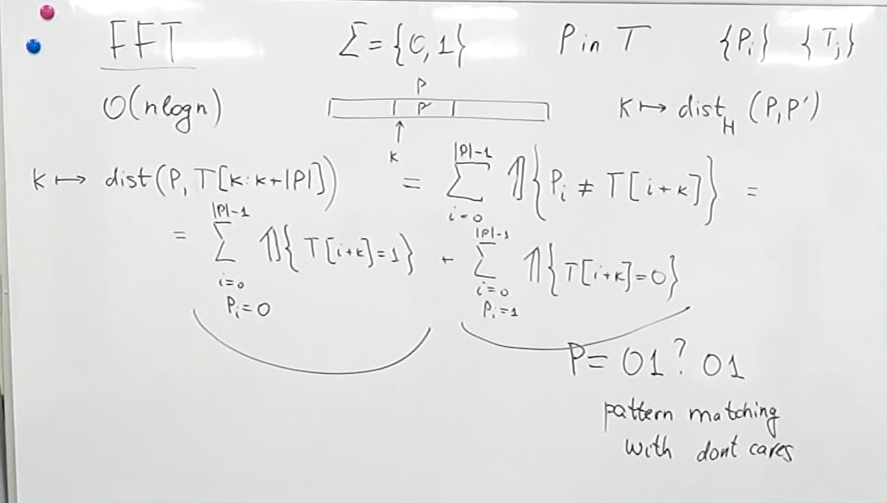 FFT Σ={0,1} P in T {Pᵢ} {Tⱼ}
O(nlogn) P P' K ↦ dist_H (P,P')
K
K ↦ dist(P, T[K:K+|P|]) = ∑_{i=0}^{|P|-1} 𝟙{Pᵢ ≠ T[i+K]} =
= ∑_{i=0, Pᵢ=0}^{|P|-1} 𝟙{T[i+K]=1} + ∑_{i=0, Pᵢ=1}^{|P|-1} 𝟙{T[i+K]=0}
P= 01?01
pattern matching
with dont cares